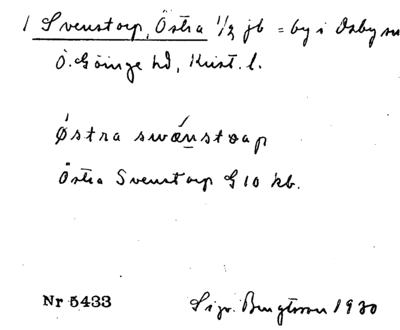 1 Svenstorp, Östra 1/2 jb = by i Osby sn
Ö. Göinge hd, Krist. l.
østra swænstorp
Östra Svenstorp G 10 kb.
Nr 5433
Sigv. Bengtsson 1930